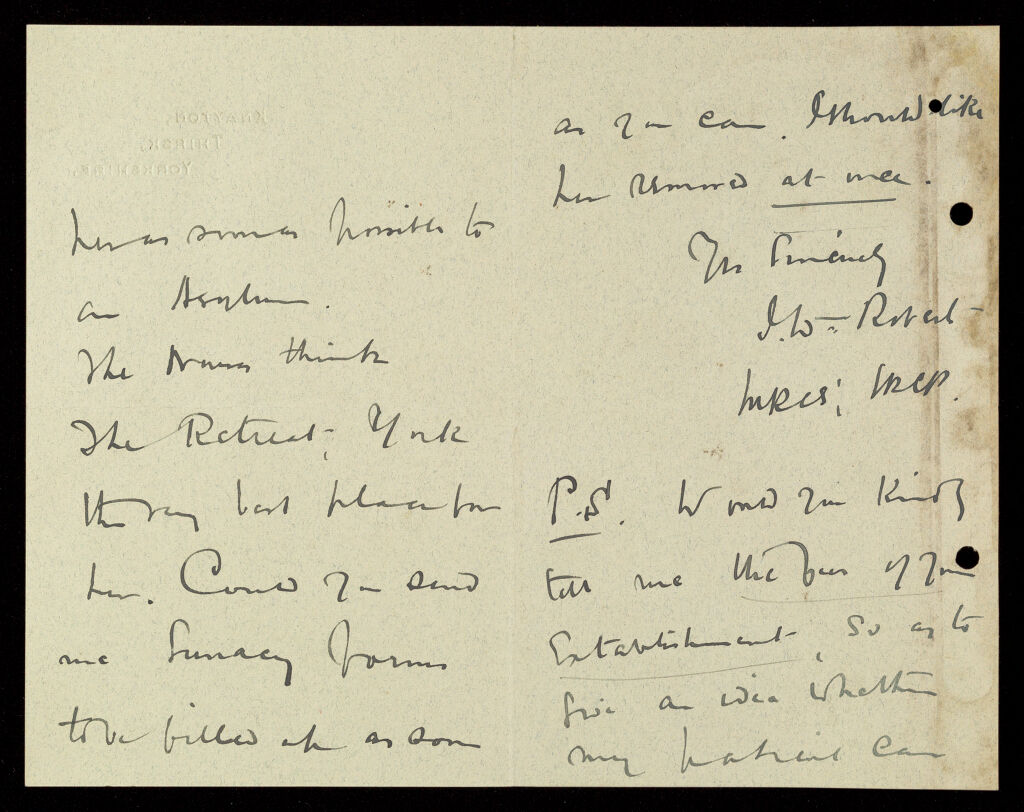 KNAYTON,
THIRSK,
YORKSHIRE.
her as soon as possible to
an Asylum.
The Nurses think
The Retreat, York
the very best place for
her. Could you send
me Lunacy forms
to be filled up as soon
as you can. I should like
her removed at once.
Yrs Sincerely
MRCS, LRCP.
P.S. Would you kindly
tell me the fees of your
Establishment, so as to
give an idea whether
my patient can